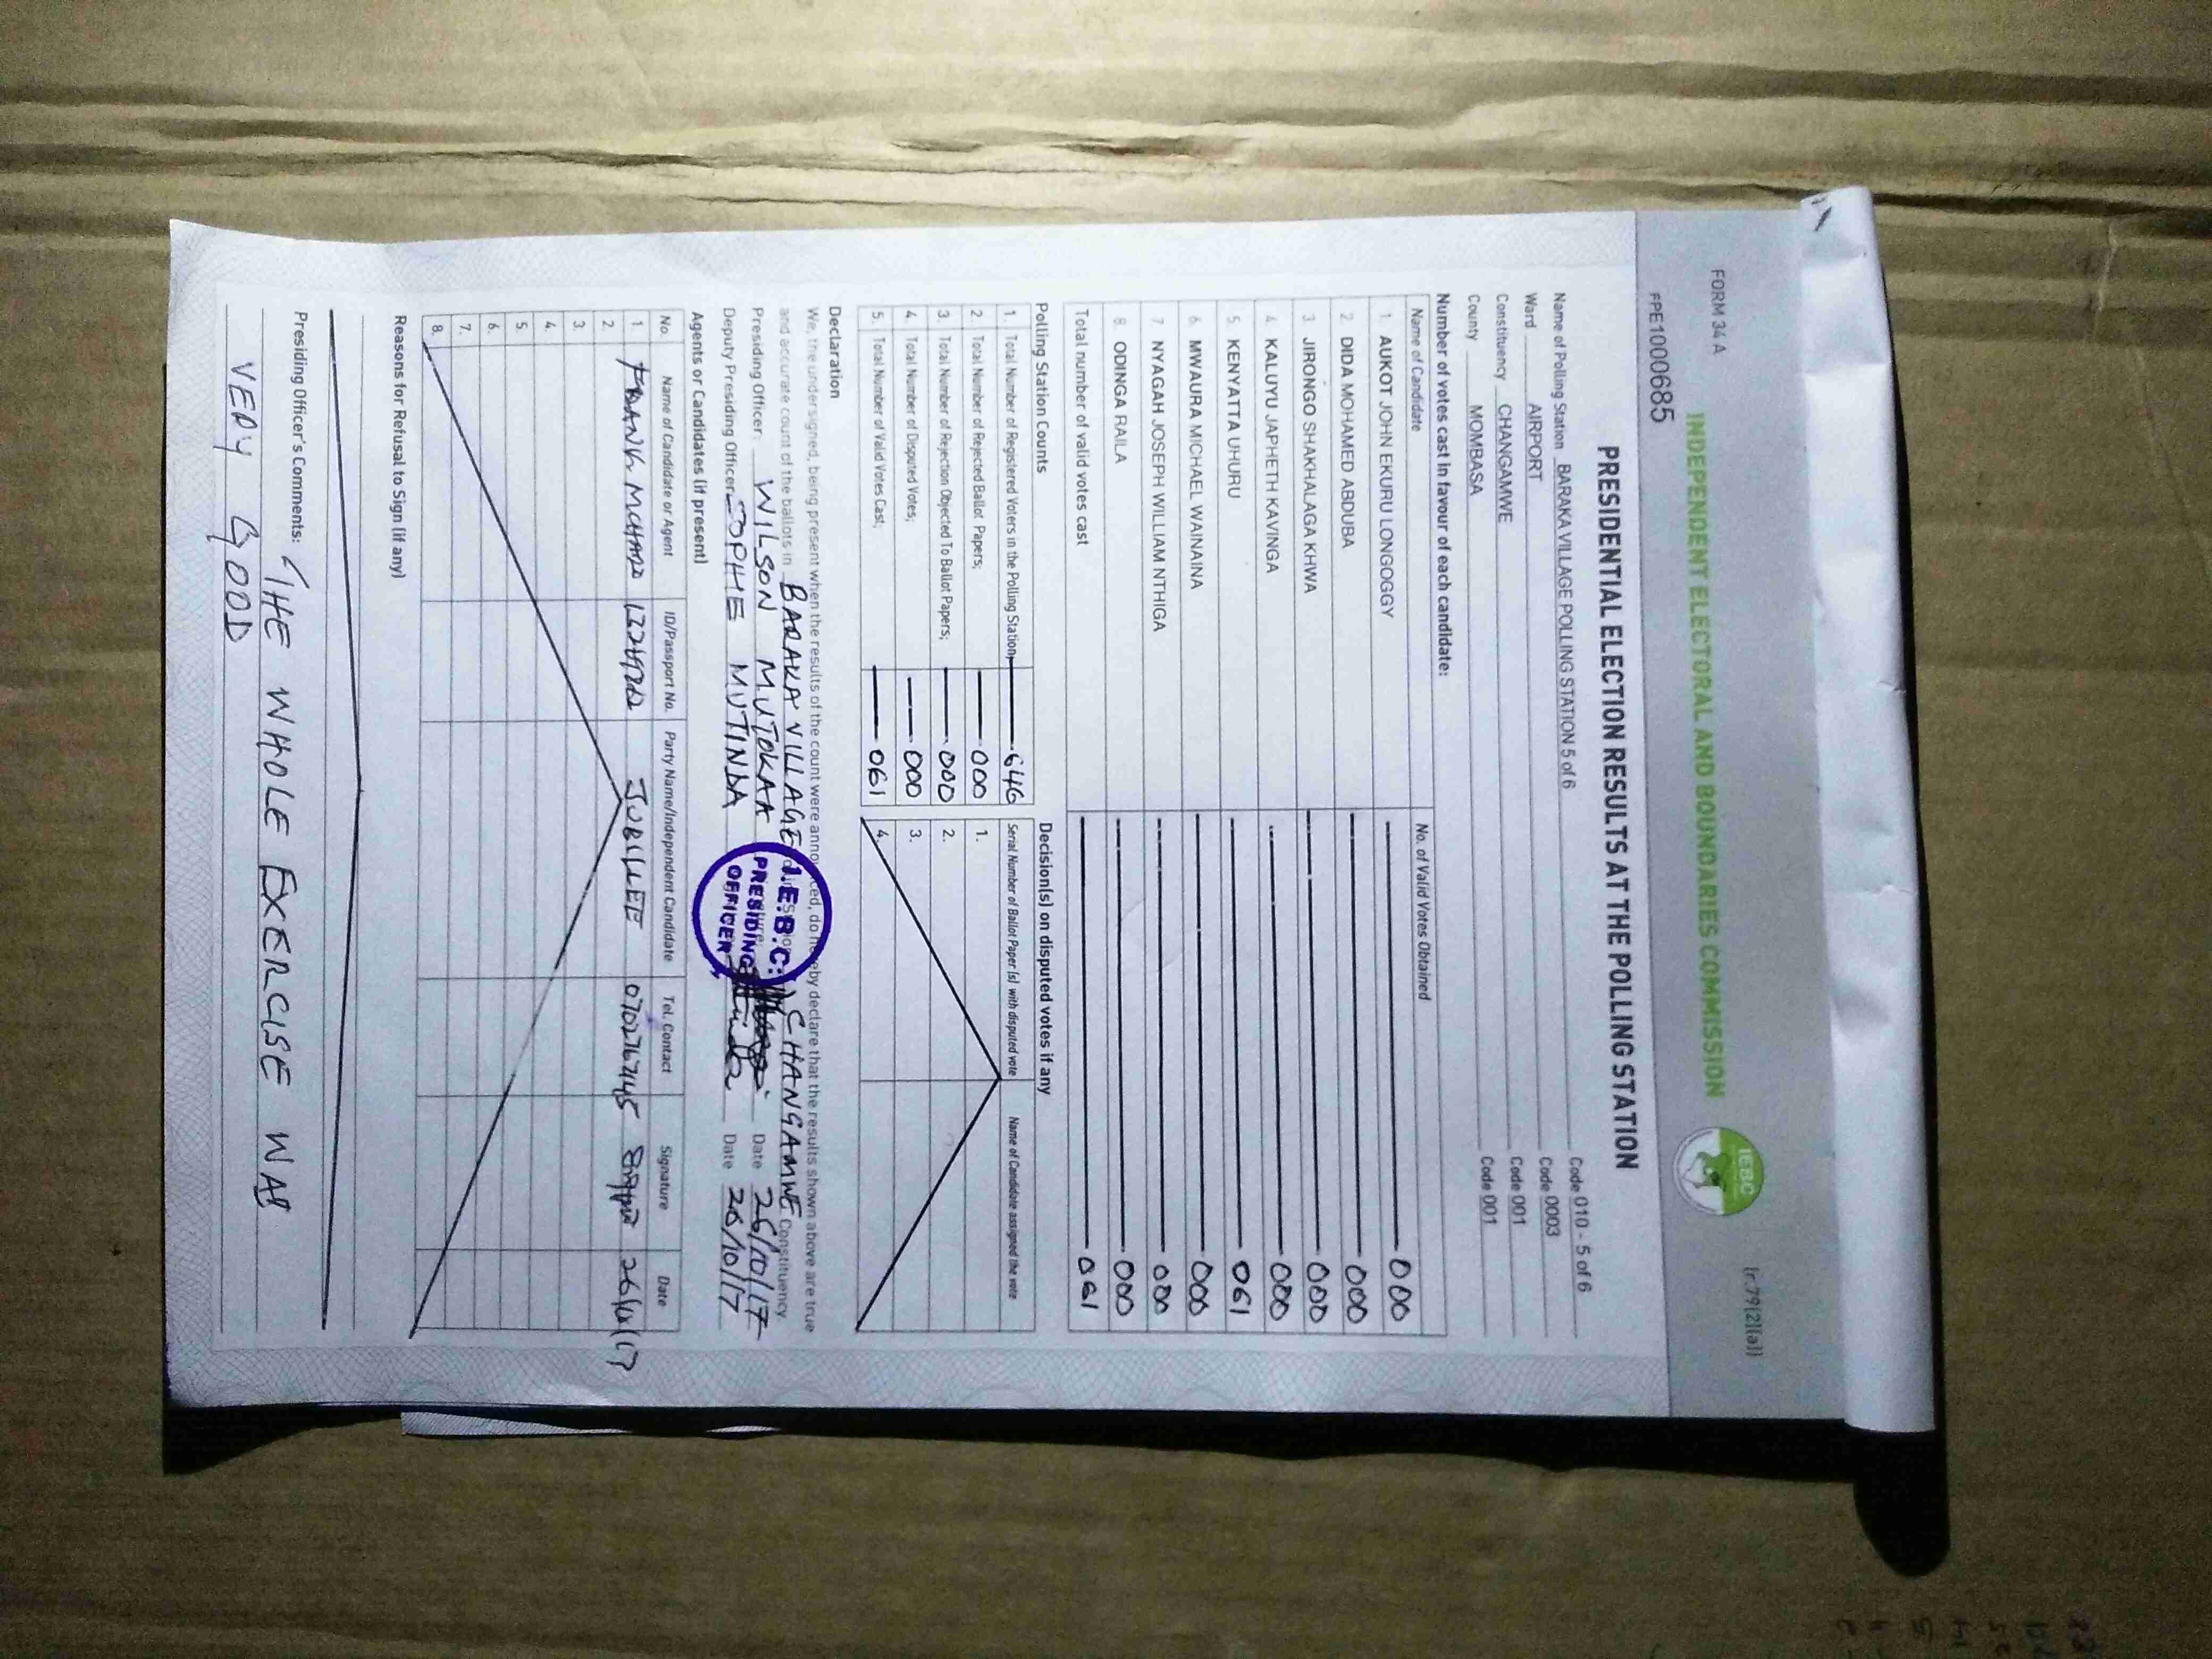 FORM 34 A
(r.79(2)(a))
INDEPENDENT ELECTORAL AND BOUNDARIES COMMISSION
IEBC
PPE1000685
PRESIDENTIAL ELECTION RESULTS AT THE POLLING STATION
Name of Polling Station BARAKA VILLAGE POLLING STATION 5 of 6 Code 010 - 5 of 6
Ward AIRPORT Code 0003
Constituency CHANGAMWE Code 001
County MOMBASA Code 001
Number of votes cast in favour of each candidate:
Name of Candidate No. of Valid Votes Obtained
1. AUKOT JOHN EKURU LONGOGGY 000
2. DIDA MOHAMED ABDUBA 000
3. JIRONGO SHAKHALAGA KHWA 000
4. KALUYU JAPHETH KAVINGA 000
5. KENYATTA UHURU 061
6. MWAURA MICHAEL WAINAINA 000
7. NYAGAH JOSEPH WILLIAM NTHIGA 000
8. ODINGA RAILA 000
Total number of valid votes cast 061
Polling Station Counts
1. Total Number of Registered Voters in the Polling Station; 646
2. Total Number of Rejected Ballot Papers; 000
3. Total Number of Rejection Objected To Ballot Papers; 000
4. Total Number of Disputed Votes; 000
5. Total Number of Valid Votes Cast; 061
Decision(s) on disputed votes if any
Serial Number of Ballot Paper (s) with disputed vote Name of Candidate assigned the vote
1.
2.
3.
4.
Declaration
We, the undersigned, being present when the results of the count were announced, do hereby declare that the results shown above are true
and accurate count of the ballots in BARAKA VILLAGE CHANGAMWE Constituency
Presiding Officer WILSON MUTOKAA Date 26/10/17
Deputy Presiding Officer SOPHIE MUTINDA Date 26/10/17
I.E.B.C.
PRESIDING
OFFICER
Agents or Candidates (if present)
No. Name of Candidate or Agent ID/Passport No. Party Name/Independent Candidate Tel. Contact Signature Date
1. JUBILEE 26/10/17
2.
3.
4.
5.
6.
7.
8.
Reasons for Refusal to Sign (if any)
Presiding Officer's Comments: THE WHOLE EXERCISE WAS
VERY GOOD